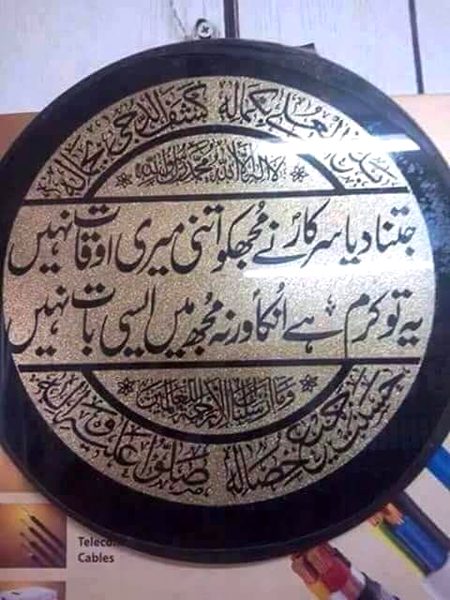 بلغ العلے بکمالہ کشف الدجیٰ بجمالہ
لا الہ الا اللہ محمد رسول اللہ
جتنا دیا سرکار نے مجھکو اتنی میری اوقات نہیں
یہ تو کرم ہے انکا ورنہ مجھ میں ایسی بات نہیں
وما ارسلناك الا رحمة للعالمين
حسنت جمیع خصالہ صلوا علیہ وآلہ
Telecom
Cables